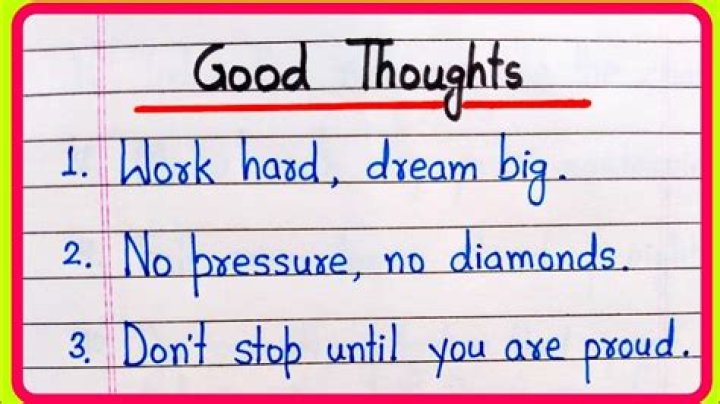 Good Thoughts
1. Work hard, dream big.
2. No pressure, no diamonds.
3. Don't stop until you are proud.